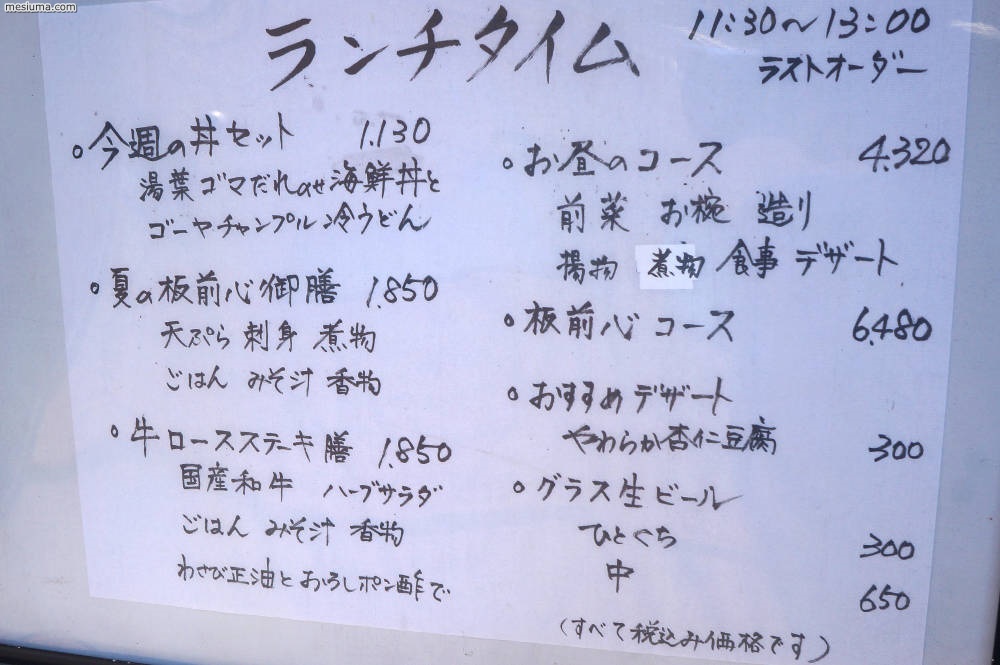 mesiuma.com
ランチタイム 11:30〜13:00
ラストオーダー
。今週の丼セット 1.130
湯葉ゴマだれのせ海鮮丼と
ゴーヤチャンプル冷うどん
。夏の板前心御膳 1.850
天ぷら 刺身 煮物
ごはん みそ汁 香物
。牛ロースステーキ膳 1.850
国産和牛 ハーブサラダ
ごはん みそ汁 香物
わさび正油とおろしポン酢で
。お昼のコース 4.320
前菜 お椀 造り
揚物 煮物 食事 デザート
。板前心コース 6.480
。おすすめデザート
やわらか杏仁豆腐 300
。グラス生ビール
ひとくち 300
中 650
(すべて税込み価格です)